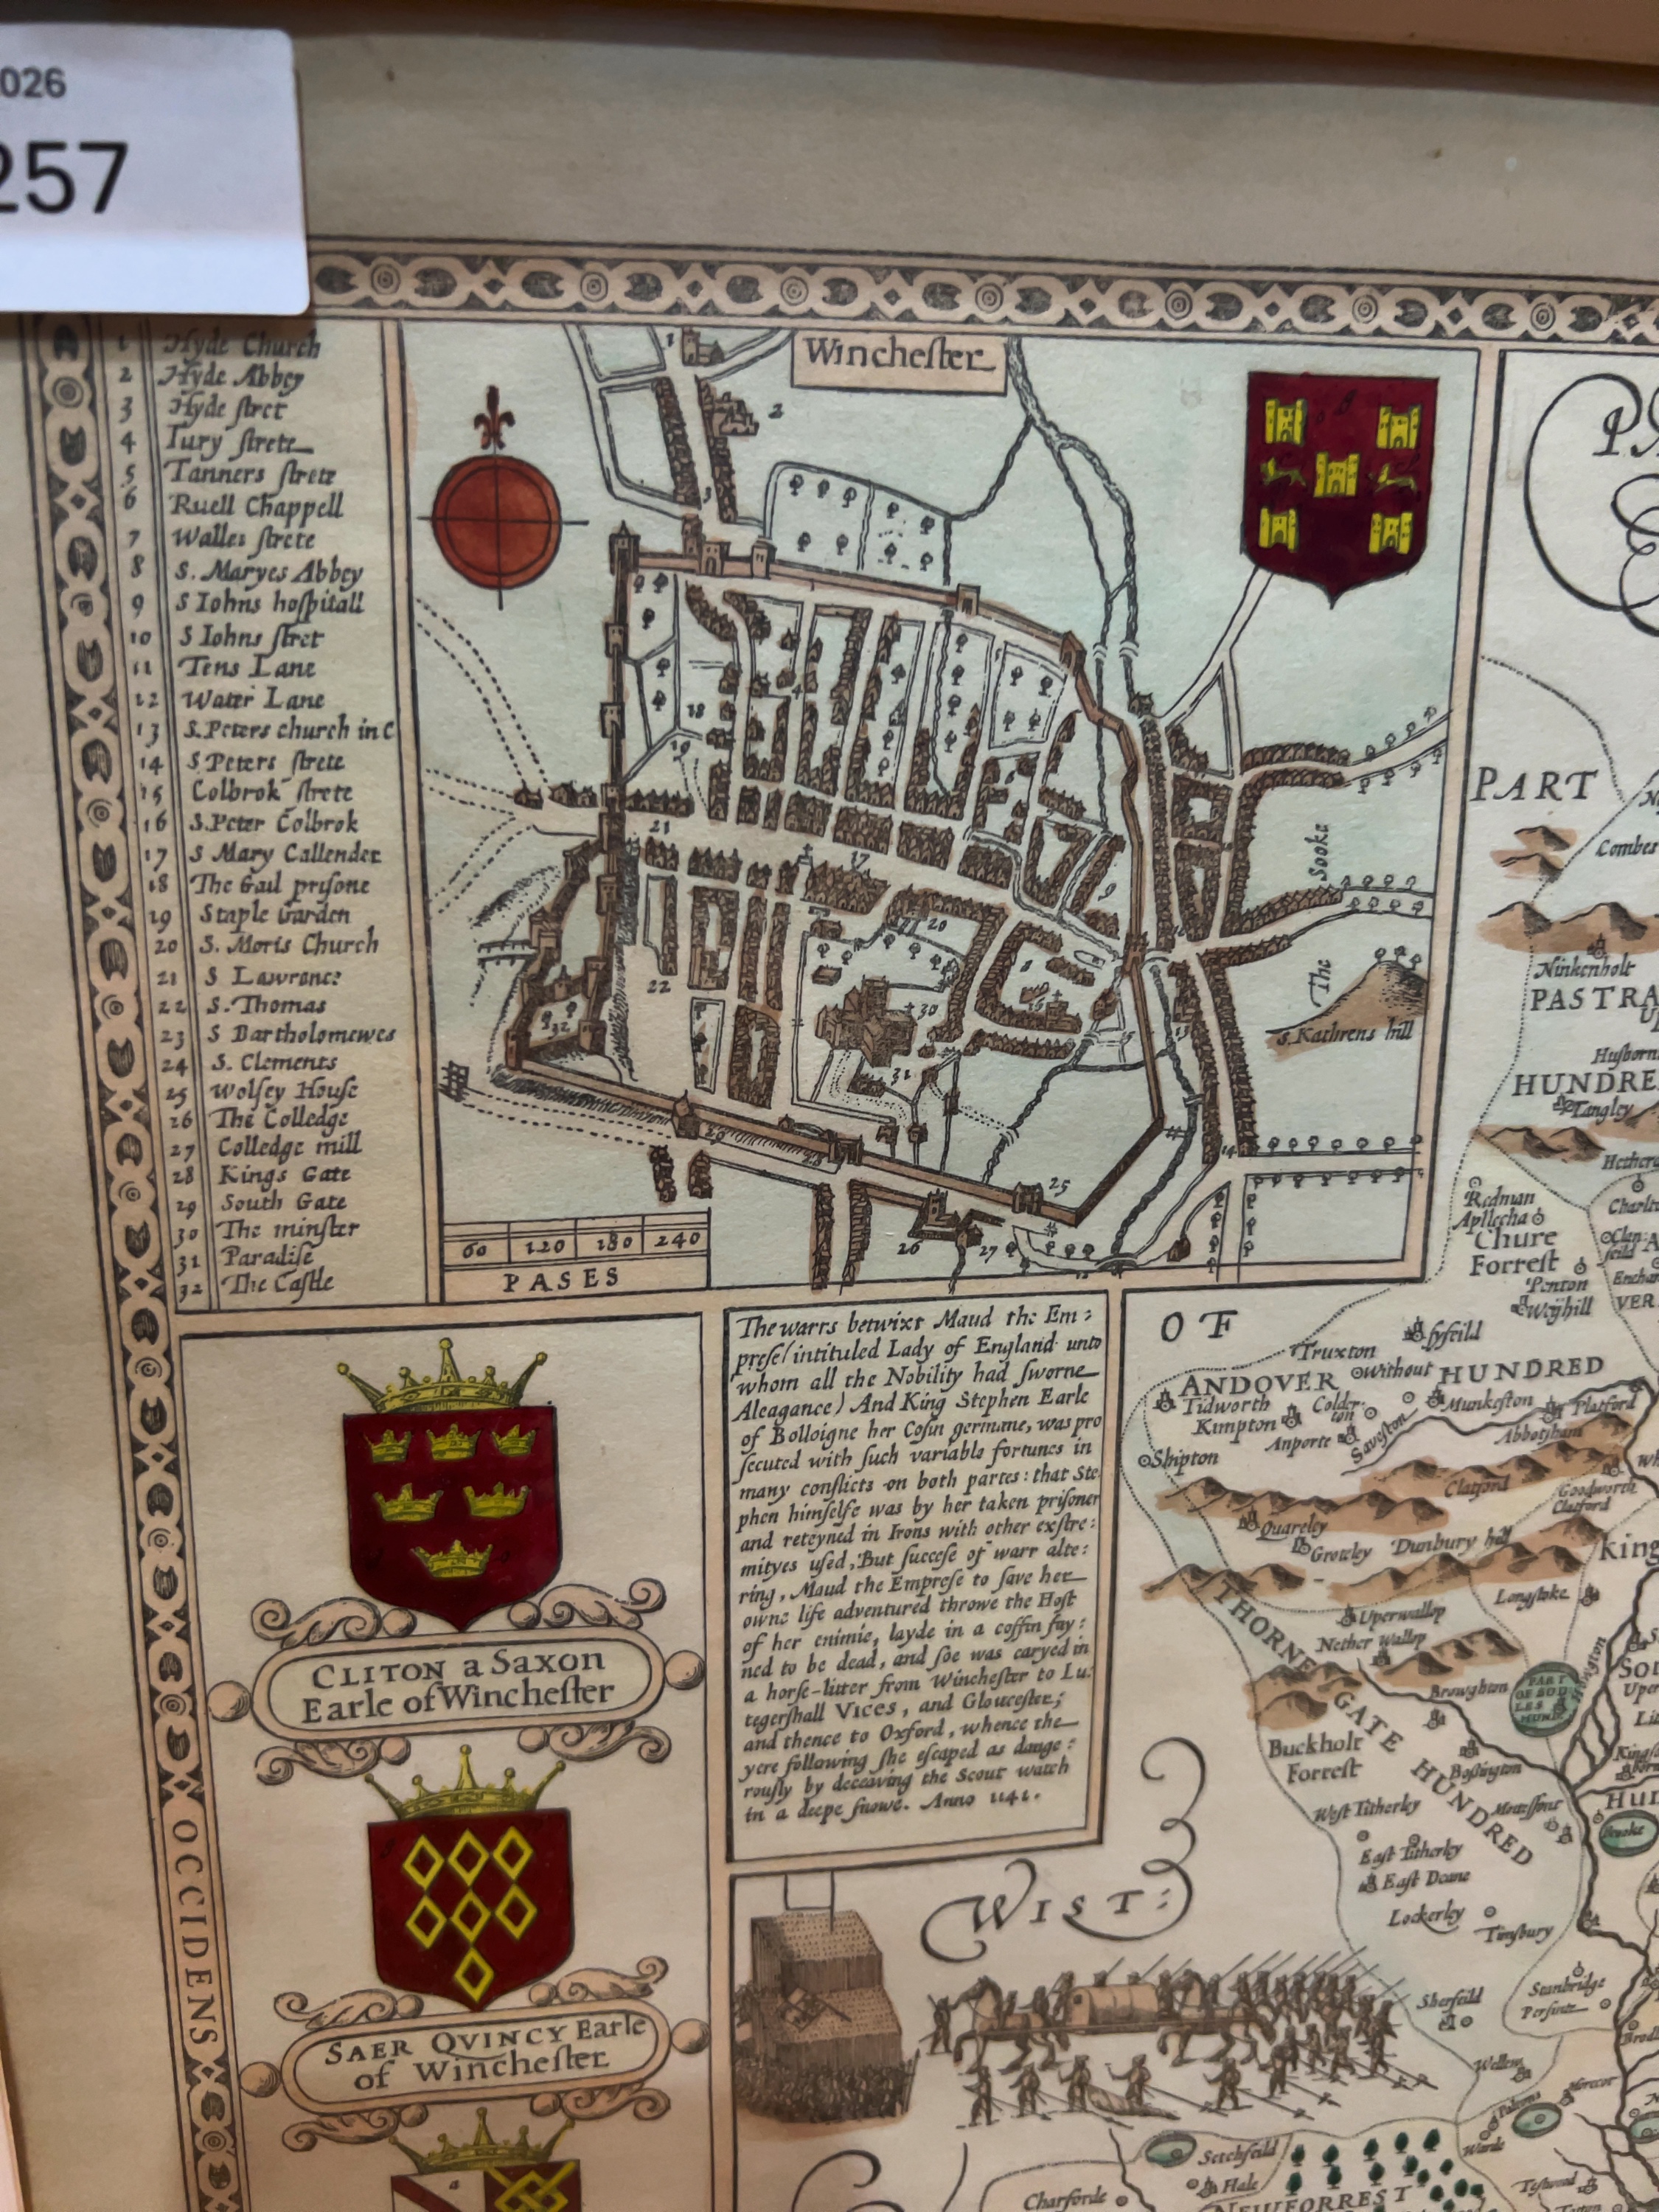 026
257
Winchester
1 Hyde Church
2 Hyde Abbey
3 Hyde ſtret
4 Iury ſtrete
5 Tanners ſtrete
6 Ruell Chappell
7 Walles ſtrete
8 S. Maryes Abbey
9 S Iohns hoſpitall
10 S Iohns ſtret
11 Tens Lane
12 Water Lane
13 S. Peters church in C
14 S Peters ſtrete
15 Colbrok ſtrete
16 S. Peter Colbrok
17 S Mary Callender
18 The Gail priſone
19 Staple Garden
20 S. Moris Church
21 S Lawrence
22 S. Thomas
23 S Bartholomewes
24 S. Clements
25 Wolſey Houſe
26 The Colledge
27 Colledge mill
28 Kings Gate
29 South Gate
30 The minſter
31 Paradiſe
32 The Caſtle
The Sooke
S. Kathrens hill
60 120 180 240
PASES
CLITON a Saxon
Earle of Wincheſter
SAER QVINCY Earle
of Wincheſter
OCCIDENS
The warrs betwixt Maud the Em:
preſe (intituled Lady of England unto
whom all the Nobility had ſworne
Aleagance) And King Stephen Earle
of Bolloigne her Coſin germane, was pro
ſecuted with ſuch variable fortunes in
many conflicts on both partes: that Ste
phen himſelfe was by her taken priſoner
and reteyned in Irons with other exſtre:
mityes uſed. But ſucceſe of warr alte:
ring, Maud the Empreſe to ſave her
owne life adventured throwe the Hoſt
of her enimie, layde in a coffin fay:
ned to be dead, and ſoe was caryed in
a horſe-litter from Wincheſter to Lu:
tegerſhall Vices, and Gloucester;
and thence to Oxford, whence the
yere following ſhe eſcaped as dange:
rouſly by deceaving the Scout watch
in a deepe ſnowe. Anno 1141.
WIST:
PART
OF
Combes
Ninkenholt
PASTRA
HUNDRE
Tangley
Redman
Apllecha
Chure
Forreſt
Penton
Weyhill
Fyfeild
Truxton
Without
ANDOVER HUNDRED
Tidworth
Kimpton
Colder
ton
Munkeſton
Platford
Anporte
Saveſton
Abbotſham
Shipton
Clatford
Goodworth
Clatford
Quareley
Groteley
Dunbury hill
King
Longſtoke
THORNE GATE HUNDRED
Uperwallop
Nether Wallop
Broughton
Buckholt
Forreſt
Boſſington
West Titherley
Eaſt Titherley
Eaſt Deane
Lockerley
Timſbury
Brooke
Sherfeild
Stanbridge
Wellow
Setchfeild
Hale
Charforde
NEWFORREST